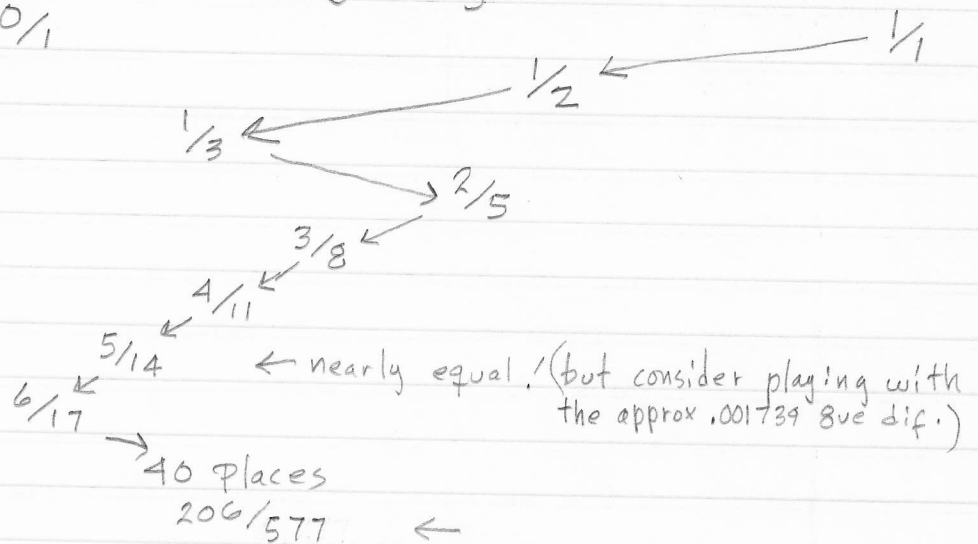 0/1
1/1
1/2
1/3
2/5
3/8
4/11
5/14 ← nearly equal! (but consider playing with
the approx .001739 8ve dif.)
6/17
40 places
206/577 ←